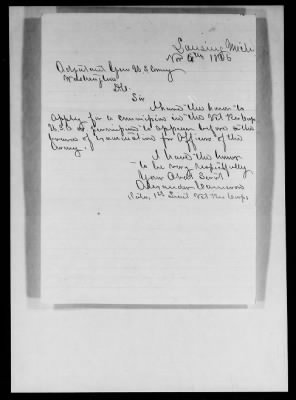 Lansing Mich
Nov 6th 1866
Adjutant Genl U S Army
Washington
D.C.
Sir
I have the honor to
apply for a commission in the Vet Res Corps
U.S.A. & permission to appear before the
Board of Examination for Officers of the
Army.
I have the honor
to be very respectfully
Your Obdt Servt
Alexander
Late 1st Lieut Vet Res Corps